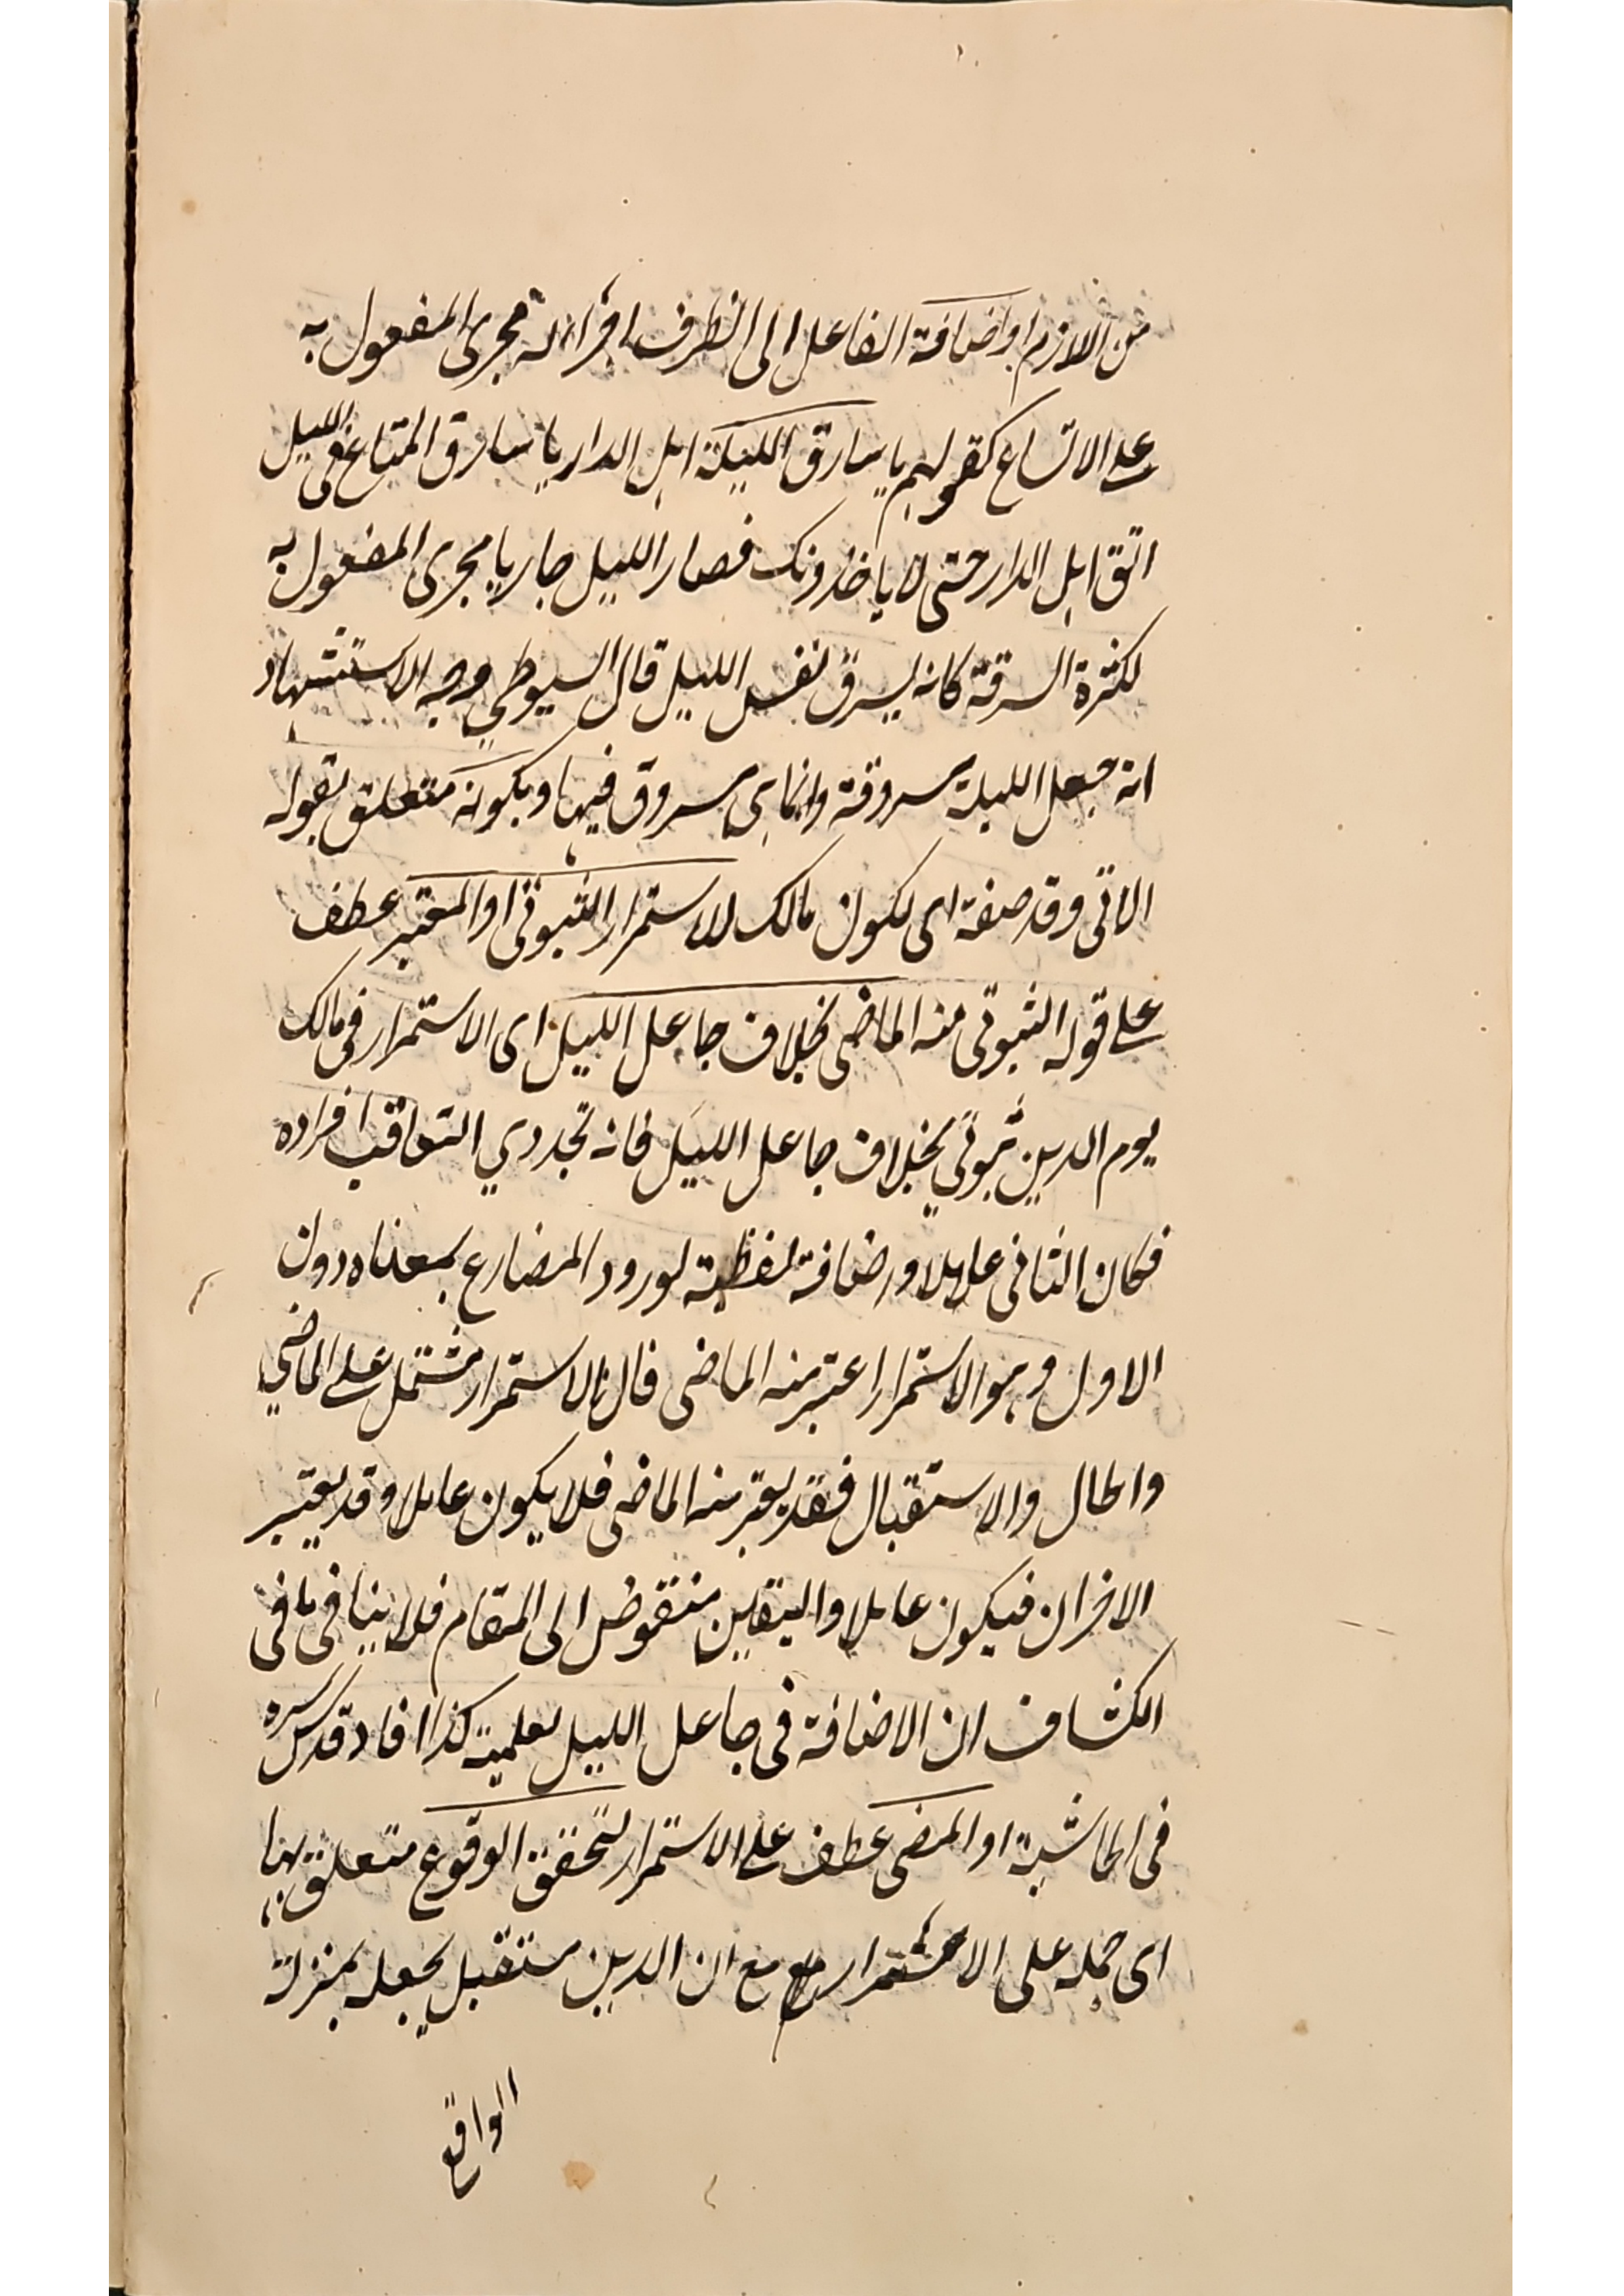 من اللازم او اضافة الفاعل الى الظرف اجراء له مجرى المفعول به
على الاتساع كقولهم يا سارق الليلة اهل الدار يا سارق المتاع فى الليل
اتق اهل الدار حتى لا ياخذونك فصار الليل جاريا مجرى المفعول به
لكثرة السرقة كانه يسرق نفس الليل قال السيوطي وجه الاستشهاد
انه جعل الليلة مسروقة وانما هى مسروق فيها وبكونه متعلق بقوله
الاتى وقد صفة اى لكون مالك للاستمرار الثبوتى او المعتبر عطف
على قوله الثبوتى منه الماضى بخلاف جاعل الليل اى الاستمرار فى مالك
يوم الدين ثبوتي بخلاف جاعل الليل فانه تجددي التعاقب افراده
فكان الثانى عاملا وراضافة لفظية لورود المضارع بمعناه دون
الاول وهو الاستمرار اعتبر منه الماضى فال الاستمرار مشتمل على الماضي
والحال والاستقبال فقد يعتبر منه الماضى فلا يكون عاملا وقد يعتبر
الاخران فيكون عاملا واليقاين منقوض الى المقام فلا ينافى ما فى
الكشاف ان الاضافة فى جاعل الليل لعلمية كذا افاد قدس سره
فى الحاشية او المضى عطف على الاستمرار لتحقق الوقوع متعلق بها
اى حمله على الاستمرار مع مع ان الدين مستقبل يجعله بمنزلة
الواقع